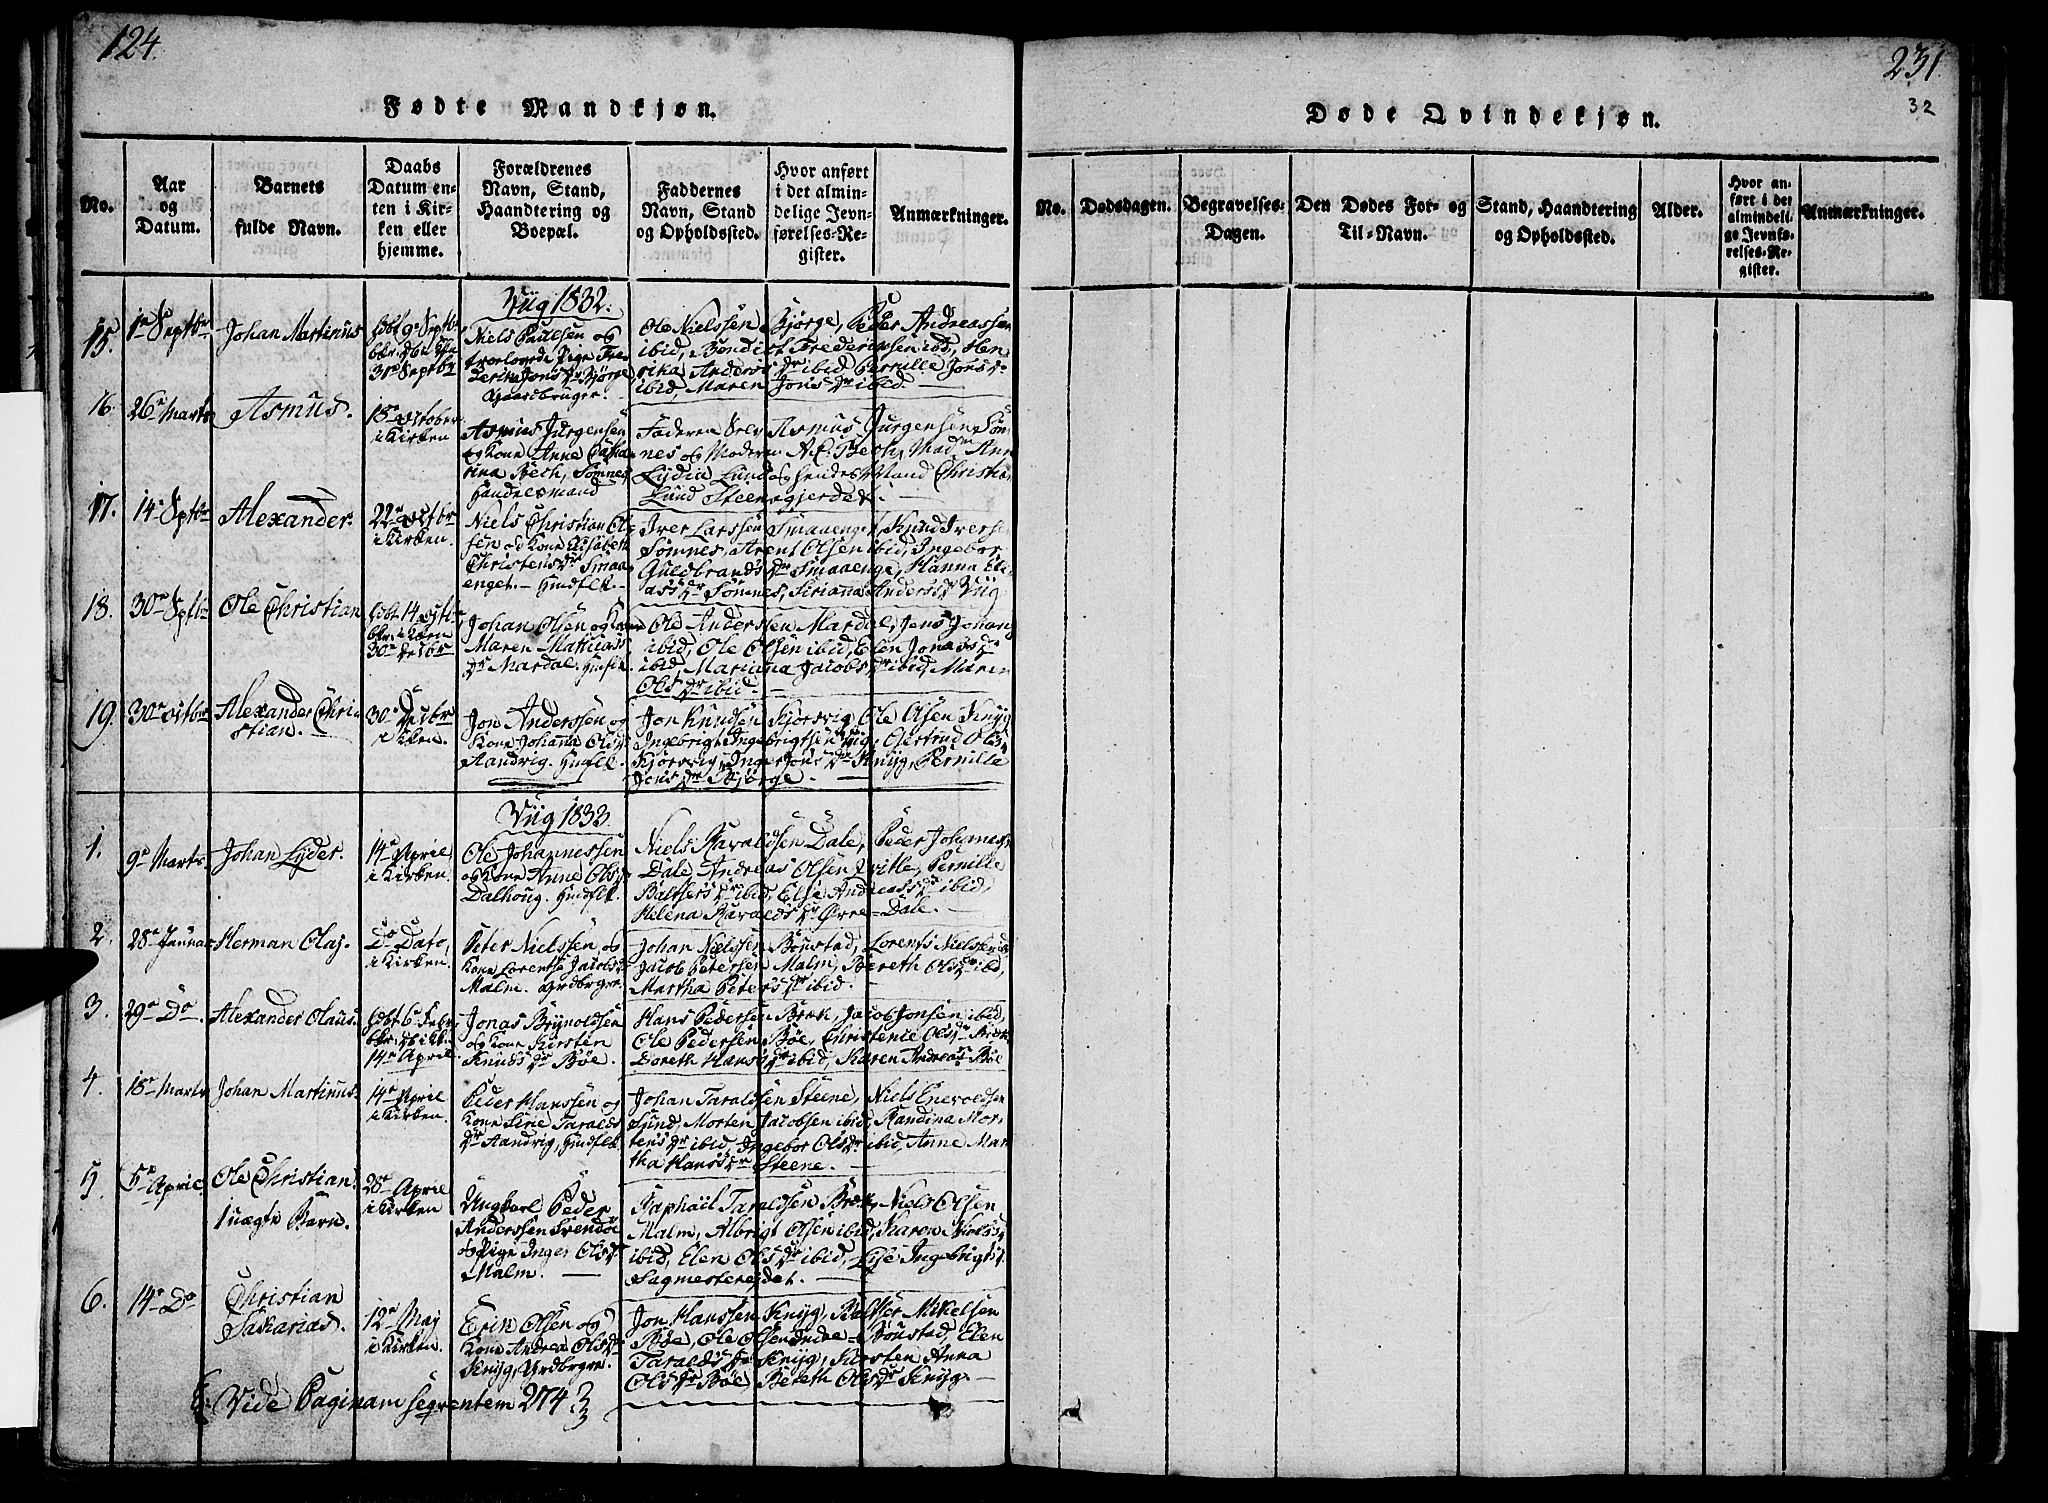 124.
Fødte Mandkjøn.
No.
Aar
og
Datum.
Barnets
fulde Navn.
Daabs
Datum en-
ten i Kir-
ken eller
hjemme.
Forældrenes
Navn, Stand,
Haandtering og
Boepæl.
Faddernes
Navn, Stand
og Opholdssted.
Hvor anført
i det almin-
delige Jevn-
førelses-Re-
gister.
Anmærkninger.
Viig 1832.
15.
1te Septbr
Johan Martinus
Niels Paulsen og
troelovede Pige Fre-
derika Jons Dr Bjørge
Gaardbruger.
Ole Nielssen Bjørge, Peder Andreassen
ibid, Bendict Frederiksen ibid, Hen-
rika Anders Dr ibid Pernille Jons Dr
ibid, Maren Jons Dr ibid
16.
26e Marts
Asmus.
18e October
i Kirken
Asmus Jurgensen
og Kone Anne Catha-
rina Bech, Sømnes
Handelsmand
Faderen selv Asmus Jurgensen Søm-
nes og Moderen A.C. Bech, Mad. Ann
Lydia Lund og hendes Mand Christian
Lund Steensgjerdet.
17.
14e Septbr
Alexander.
22e Octbr
i Kirken.
Niels Christian Ol-
sen og Kone Elisabeth
Christens Dr Smaa-
enget. Huusflk.
Iver Larssen Smaaenget, Knud Iverse
Sømnes, Arent Olsen ibid, Ingebor
Guldbrands Dr Smaaenge, Hanna Eli-
ass Dr Sømnes, Siriana Anders Dr Viig
18.
30e Septbr
Ole Christian
Johan Olsen og Kone
Maren Mathiass
Dr Mardal. Huusflk.
Ole Anderssen Mardal, Jens Johan
ibid, Ole Olsen ibid, Elen Jonass Dr
ibid, Mariana Jacobs Dr ibid, Maren
Ols Dr ibid.
19.
30e Octbr
Alexander Chri-
stian.
30e Decbr
i Kken.
Jon Anderssen og
Kone Johana Ols Dr
Aandvig. Huusflk.
Jon Knudsen Kjørsvig, Ole Olsen Knyg
Ingebrigt Ingebrigtsen Viig, Gjertrud Ols Dr
Kjørsvig, Inger Jons Dr Knyg, Pernille
Jons Dr Bjørge.
Viig 1833.
1.
9e Marts
Johan Lyder.
14e April
i Kirken.
Ole Johannessen
og Kone Anne Ols Dr
Dalhoug. Huusflk.
Niels Haraldsen Dale, Peder Johannes
Dale, Andreas Olsen Tvitle, Pernille
Baltsers Dr ibid, Else Andreass Dr ibid,
Helena Haralds Dr Øvre-Dale.
2.
28e Januar
Herman Olaj.
Do Dato,
i Kirken.
Peter Nielssen og
Kone Lorentse Jacobs Dr
Malm. Grdbrgre.
Johan Nielssen Bøustad, Lorents Nielssen
Jacob Petersen Malm, Bereth Ols Dr ibid,
Martha Peters Dr ibid.
3.
29e Do
Alexander Olaus.
14e April.
Jonas Brynoldsen
og Kone Kirsten
Knuds Dr Bøe.
Hans Pedersen Bræk, Jacob Jonsen ibid,
Ole Pedersen Bøe, Christence Ols Dr Bræk
Doreth Hans Dr ibid, Karen Andreas Dr Bøe
4.
18e Marts
Johan Martinus.
14e April
i Kirken
Peder Hanssen og
Kone Sirie Taralds
Dr Aandvig, Huusflk.
Johan Taraldsen Steene, Niels Enevoldsen
Sund, Morten Jacobsen ibid, Randina Mor-
tens Dr ibid, Ingebor Ols Dr ibid, Anne Mar-
tha Hans Dr Steene.
5.
5e April
Ole Christian.
Uægte Barn.
28e April
i Kirken
Ungkarl Peder
Anderssen Svendøe
og Pige Inger Ols Dr
Malm.
Raphael Taraldsen Bræk, Niels Olsen
Malm, Albrigt Olsen ibid, Karen Niels Dr
ibid, Elen Ols Dr ibid, Lise Ingebrigts Dr
Sagmesterejdet.
6.
14e Do
Christian
Sakarias.
12e Maj
i Kirken.
Erik Olsen og
Kone Andrea Ols Dr
Knyg, Grdbrgre.
Jon Hanssen Knyg, Baltser Mikelsen
Bøe, Ole Olsen Indre-Bøustad, Elen
Taralds Dr Knyg, Kirsten Anna
Ols Dr Bøe, Bereth Ols Dr Knyg.
Vide Paginam seqventem 274
231
32
Døde Qvindekjøn.
No.
Dødsdagen.
Begravelses-
Dagen.
Den Dødes For- og
Til-Navn.
Stand, Haandtering
og Opholdssted.
Alder.
Hvor an-
ført i det
almindeli-
ge Jevnfø-
relses-Re-
gister.
Anmærkninger.